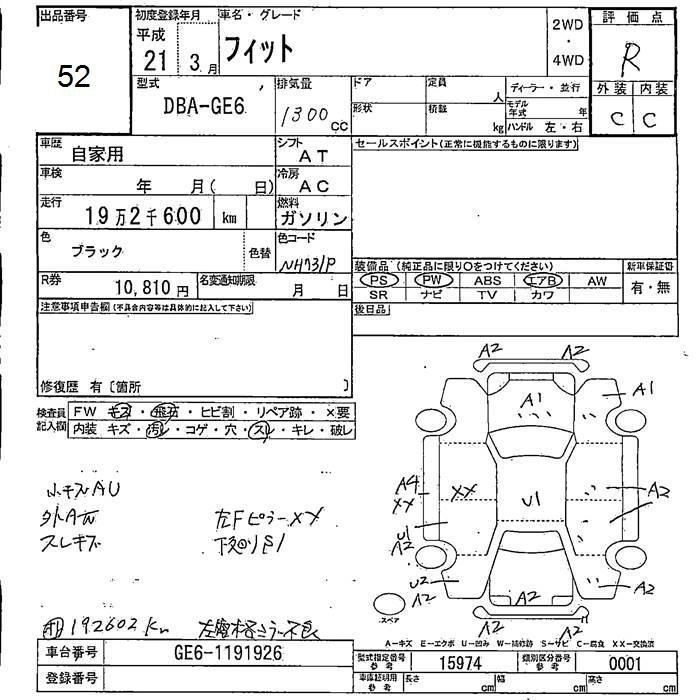 出品番号 52
初度登録年月 平成 21 3月
車名・グレード フィット
2WD ・ 4WD
評価点 R
外装 内装
C C
型式 DBA-GE6
排気量 1300 cc
ドア 定員 人
形状 積載 kg
ディーラー・並行
モデル年式 年
ハンドル 左・右
車歴 自家用
シフト AT
車検 年 月( 日)
冷房 AC
走行 19万2千600 km
燃料 ガソリン
色 ブラック 色替
色コード NH731P
R券 10,810円
名変通知期限 月 日
セールスポイント(正常に機能するものに限ります)
装備品(純正品に限り○をつけてください)
PS PW ABS エアB AW
SR ナビ TV カワ
新車保証書 有・無
後日品
注意事項申告欄(不具合内容等は具体的に記入して下さい)
修復歴 有〔箇所 〕
検査員記入欄
FW キズ・飛石・ヒビ割・リペア跡・×要
内装 キズ・汚レ・コゲ・穴・スレ・キレ・破レ
小キズAU
スレキズ
左FピラーXX
192602km
A2 A2
A1 A1
A4 XX XX
U1 A2
U1 A2
U2 A2 A2
A2 A2 A2
スペア
A-キズ E-エクボ U-凹み W-補修跡 S-サビ C-腐食 XX-交換済
車台番号 GE6-1191926
登録番号
型式指定番号 参考 15974
類別区分番号 参考 0001
車庫証明用 参考 長さ cm 幅 cm 高さ cm